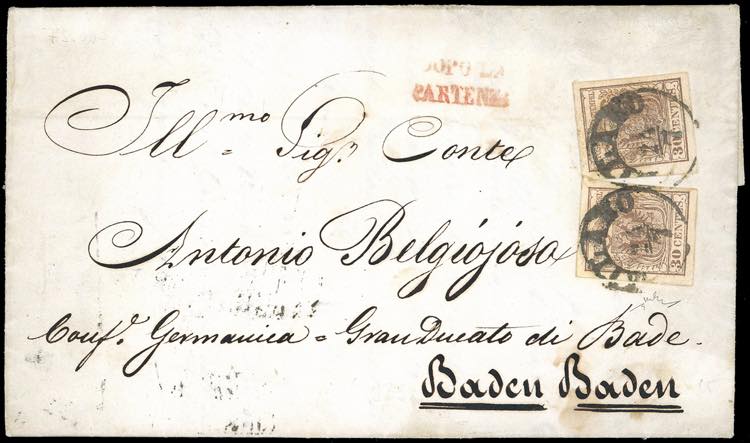 DOPO LA
PARTENZA
Ill.mo Sig.r Conte
Antonio Belgiójòso
Conf.e Germanica = GranDucato di Bade.
Baden Baden
MILANO
30 CENT.
MILANO
30 CENT.